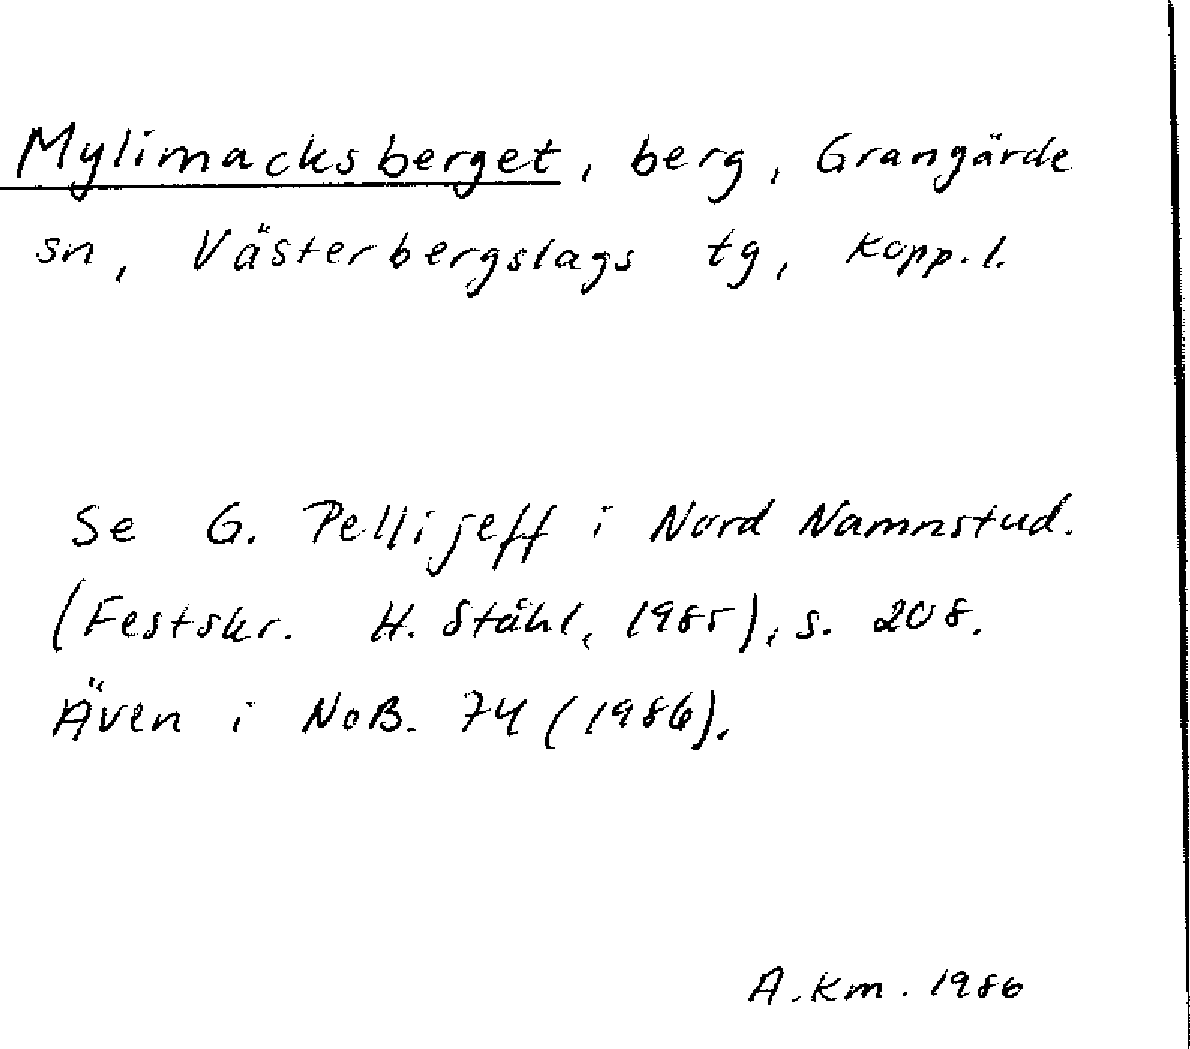 Mylimacksberget, berg, Grangärde
sn, Västerbergslags tg, Kopp. l.
Se G. Pellijeff i Nord Namnstud.
(Festskr. H. Ståhl, 1985), s. 208.
Även i NoB. 74 (1986).
A. Km. 1986